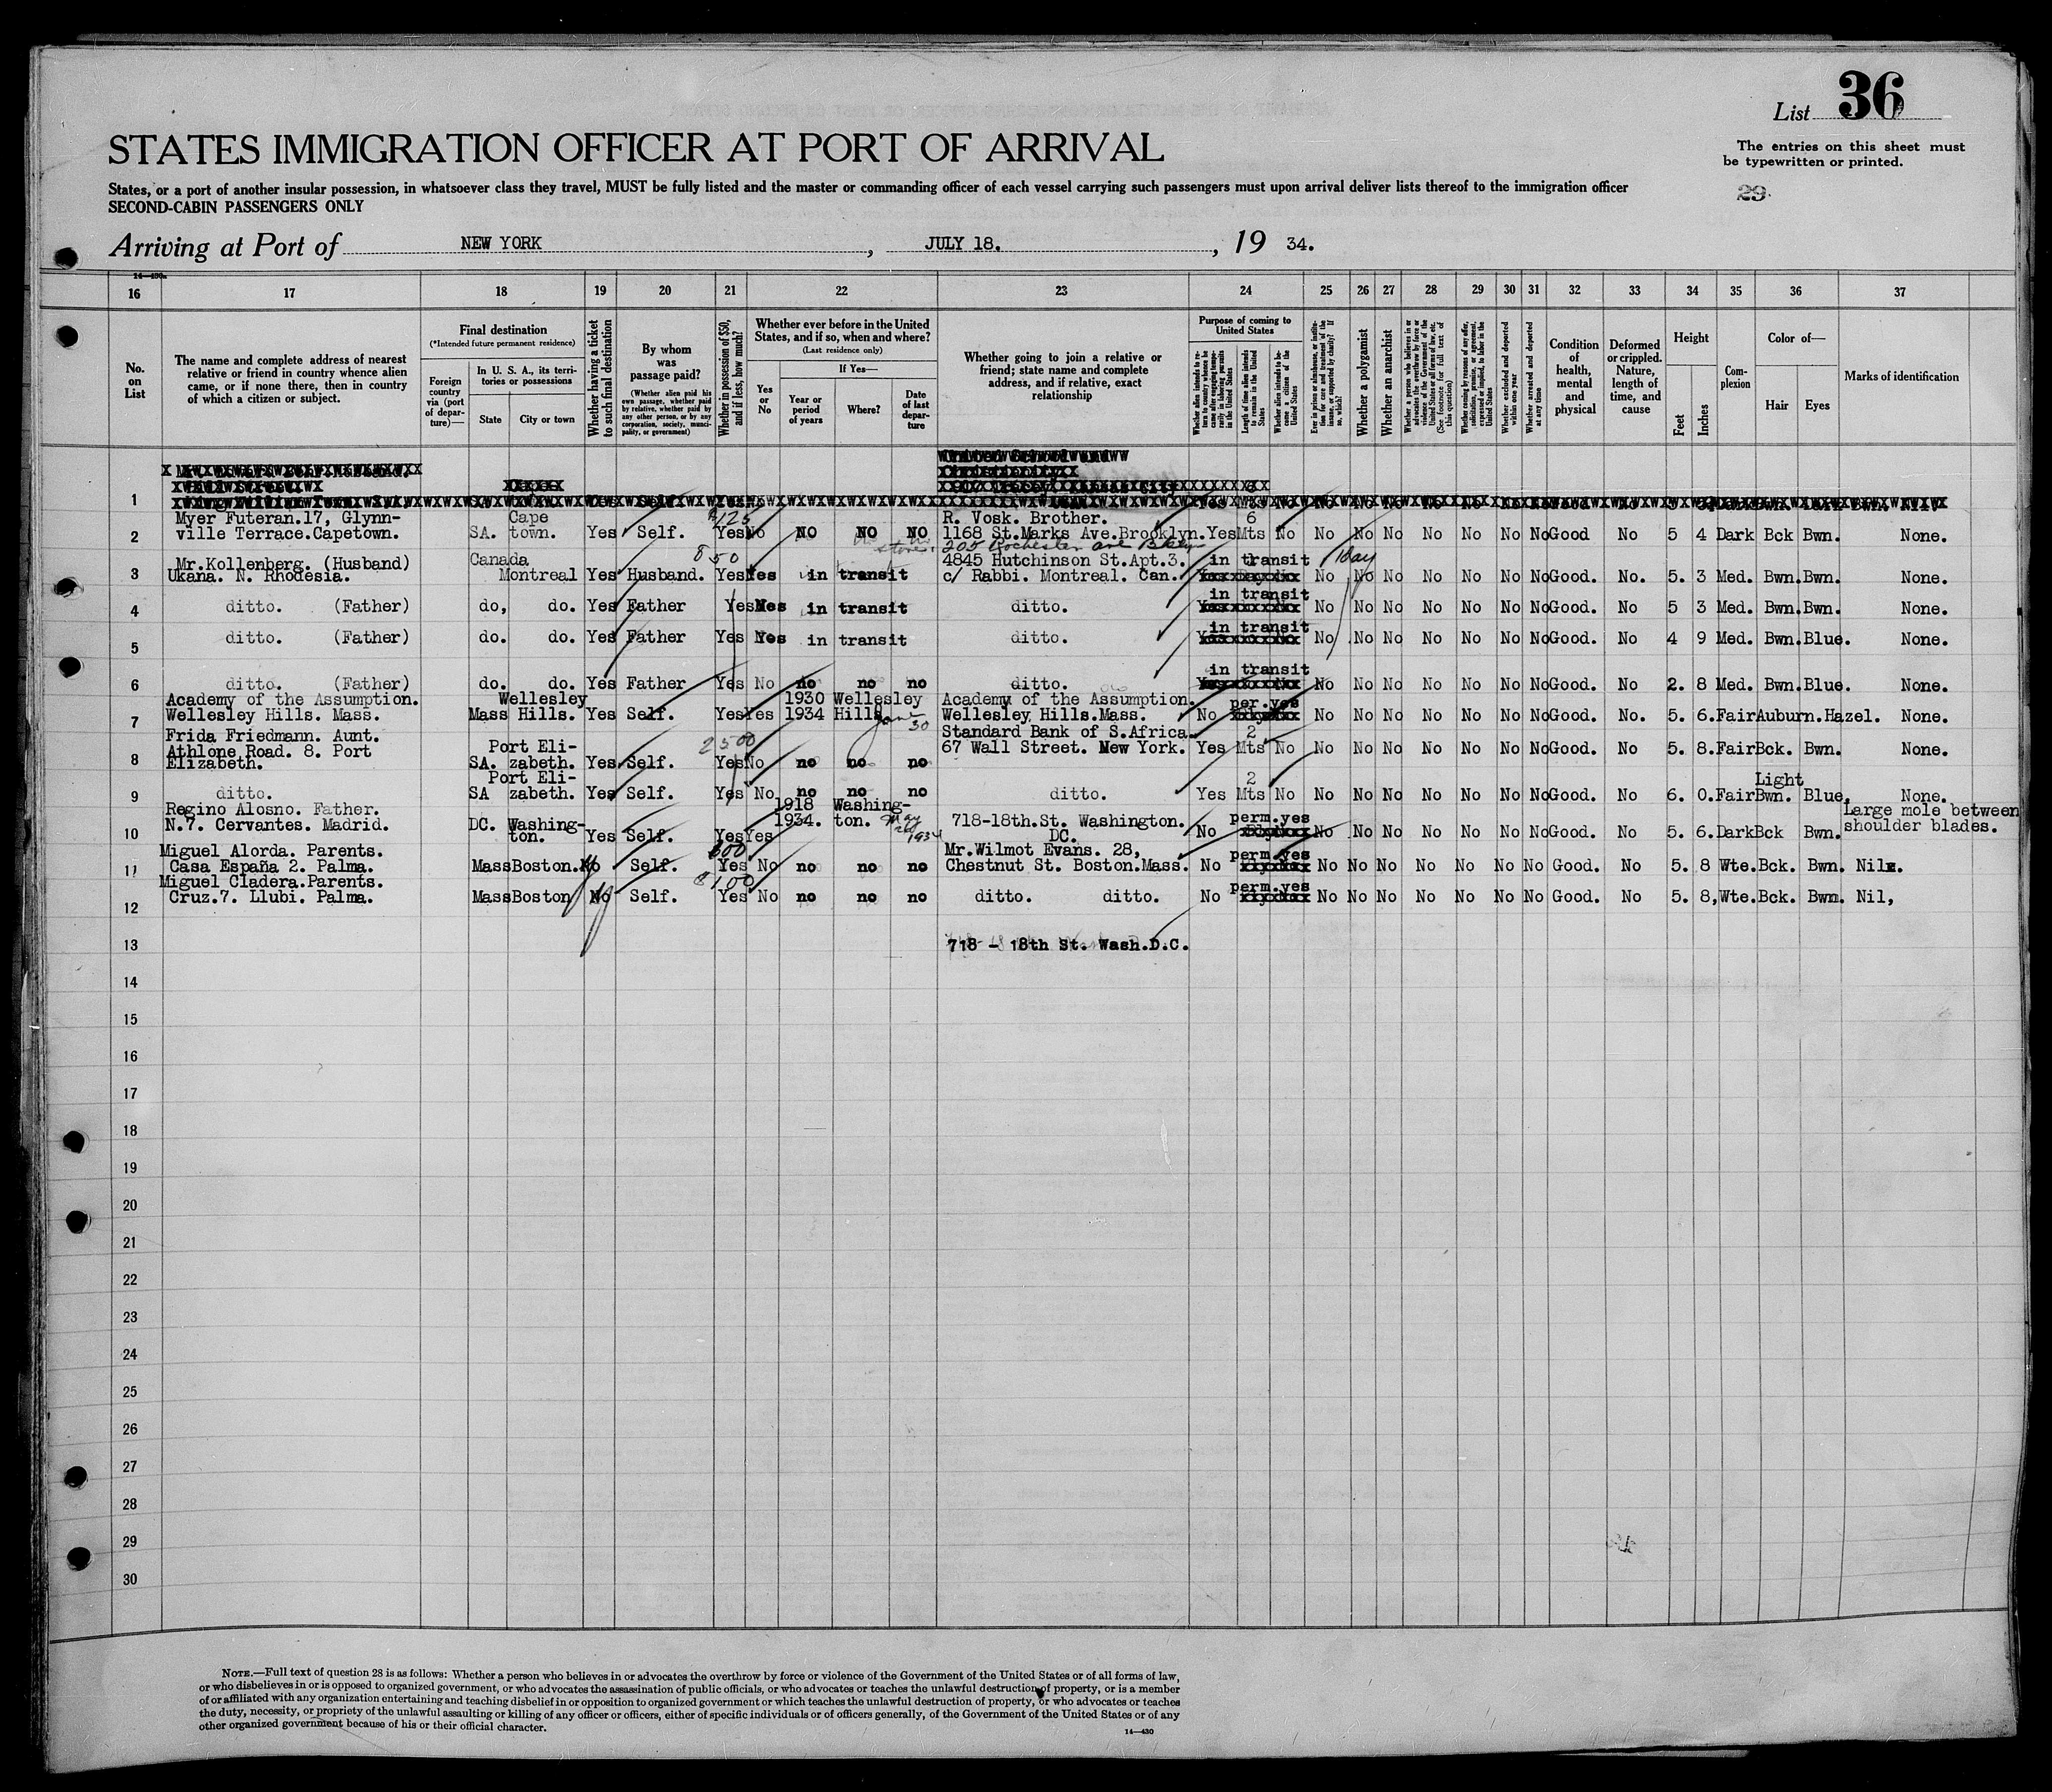 List 36
STATES IMMIGRATION OFFICER AT PORT OF ARRIVAL
The entries on this sheet must
be typewritten or printed.
States, or a port of another insular possession, in whatsoever class they travel, MUST be fully listed and the master or commanding officer of each vessel carrying such passengers must upon arrival deliver lists thereof to the immigration officer
SECOND-CABIN PASSENGERS ONLY
29
Arriving at Port of NEW YORK, JULY 18., 19 34.
14—430a
16 17 18 19 20 21 22 23 24 25 26 27 28 29 30 31 32 33 34 35 36 37
No. on List
The name and complete address of nearest
relative or friend in country whence alien
came, or if none there, then in country
of which a citizen or subject.
Final destination
(*Intended future permanent residence)
Foreign country via (port of departure)—
In U. S. A., its territories or possessions
State
City or town
Whether having a ticket to such final destination
By whom was passage paid?
(Whether alien paid his own passage, whether paid by relative, whether paid by any other person, or by any corporation, society, municipality, or government)
Whether in possession of $50, and if less, how much?
Whether ever before in the United
States, and if so, when and where?
(Last residence only)
Yes or No
If Yes—
Year or period of years
Where?
Date of last departure
Whether going to join a relative or
friend; state name and complete
address, and if relative, exact
relationship
Purpose of coming to United States
Whether alien intends to return to country whence he came after engaging temporarily in laboring pursuits in the United States
Length of time alien intends to remain in the United States
Whether alien intends to become a citizen of the United States
Ever in prison or almshouse, or institution for care and treatment of the insane, or supported by charity? If so, which?
Whether a polygamist
Whether an anarchist
Whether a person who believes in or advocates the overthrow by force or violence of the Government of the United States or all forms of law, etc. (See footnote for full text of this question)
Whether coming by reasons of any offer, solicitation, promise, or agreement, expressed or implied, to labor in the United States
Whether excluded and deported within one year
Whether arrested and deported at any time
Condition of health, mental and physical
Deformed or crippled. Nature, length of time, and cause
Height
Feet
Inches
Complexion
Color of—
Hair
Eyes
Marks of identification
1
Myer Futeran.17, Glynn- Cape $125 R. Vosk. Brother. 6
2 ville Terrace.Capetown. SA. town. Yes Self. Yes No NO NO NO 1168 St.Marks Ave.Brooklyn. Yes Mts No No No No No No No No Good No 5 4 Dark Bck Bwn. None.
205 Rochester ave Bklyn
Mr.Kollenberg. (Husband) Canada 850 4845 Hutchinson St.Apt.3. in transit 1 day
3 Ukana. N. Rhodesia. Montreal Yes Husband. Yes Yes in transit c/ Rabbi. Montreal. Can. No No No No No No No Good. No. 5. 3 Med. Bwn. Bwn. None.
in transit
4 ditto. (Father) do, do. Yes Father Yes Yes in transit ditto. No No No No No No No Good. No 5 3 Med. Bwn. Bwn. None.
in transit
5 ditto. (Father) do. do. Yes Father Yes Yes in transit ditto. No No No No No No No Good. No 4 9 Med. Bwn. Blue. None.
in transit
6 ditto. (Father) do. do. Yes Father Yes No no no no ditto. No No No No No No No Good. No 2. 8 Med. Bwn. Blue. None.
Academy of the Assumption. Wellesley 1930 Wellesley Academy of the Assumption. per.yes
7 Wellesley Hills. Mass. Mass Hills. Yes Self. Yes Yes 1934 Hills June 30 Wellesley Hills.Mass. No No No No No No No No Good. No. 5. 6. Fair Auburn. Hazel. None.
Frida Friedmann. Aunt. 2500 Standard Bank of S.Africa. 2
Athlone Road. 8. Port Port Eli- 67 Wall Street. New York. Yes Mts No No No No No No No No Good. No 5. 8. Fair Bck. Bwn. None.
8 Elizabeth. SA. zabeth. Yes Self. Yes No no no no
Port Eli- 2 Light
9 ditto. SA zabeth. Yes Self. Yes No no no no ditto. Yes Mts No No No No No No No No Good. No 6. 0. Fair Bwn. Blue. None.
Regino Alosno. Father. 1918 Washing- Large mole between
N.7. Cervantes. Madrid. DC. Washing- 1934. ton. May 1934 718-18th.St. Washington. perm.yes shoulder blades.
10 ton. Yes Self. Yes Yes DC. No No No No No No No No Good. No 5. 6. Dark Bck Bwn.
Miguel Alorda. Parents. 600 Mr.Wilmot Evans. 28, perm.yes
11 Casa España 2. Palma. Mass Boston. No Self. Yes No no no no Chestnut St. Boston.Mass. No No No No No No No No Good. No 5. 8 Wte. Bck. Bwn. Nil.
Miguel Cladera.Parents. $100 perm.yes
12 Cruz.7. Llubi. Palma. Mass Boston No Self. Yes No no no no ditto. ditto. No No No No No No No No Good. No 5. 8, Wte. Bck. Bwn. Nil,
13 718 - 18th St. Wash.D.C.
14
15
16
17
18
19
20
21
22
23
24
25
26
27
28
29
30
NOTE.—Full text of question 28 is as follows: Whether a person who believes in or advocates the overthrow by force or violence of the Government of the United States or of all forms of law,
or who disbelieves in or is opposed to organized government, or who advocates the assassination of public officials, or who advocates or teaches the unlawful destruction of property, or is a member
of or affiliated with any organization entertaining and teaching disbelief in or opposition to organized government or which teaches the unlawful destruction of property, or who advocates or teaches
the duty, necessity, or propriety of the unlawful assaulting or killing of any officer or officers, either of specific individuals or of officers generally, of the Government of the United States or of any
other organized government because of his or their official character.
14—430